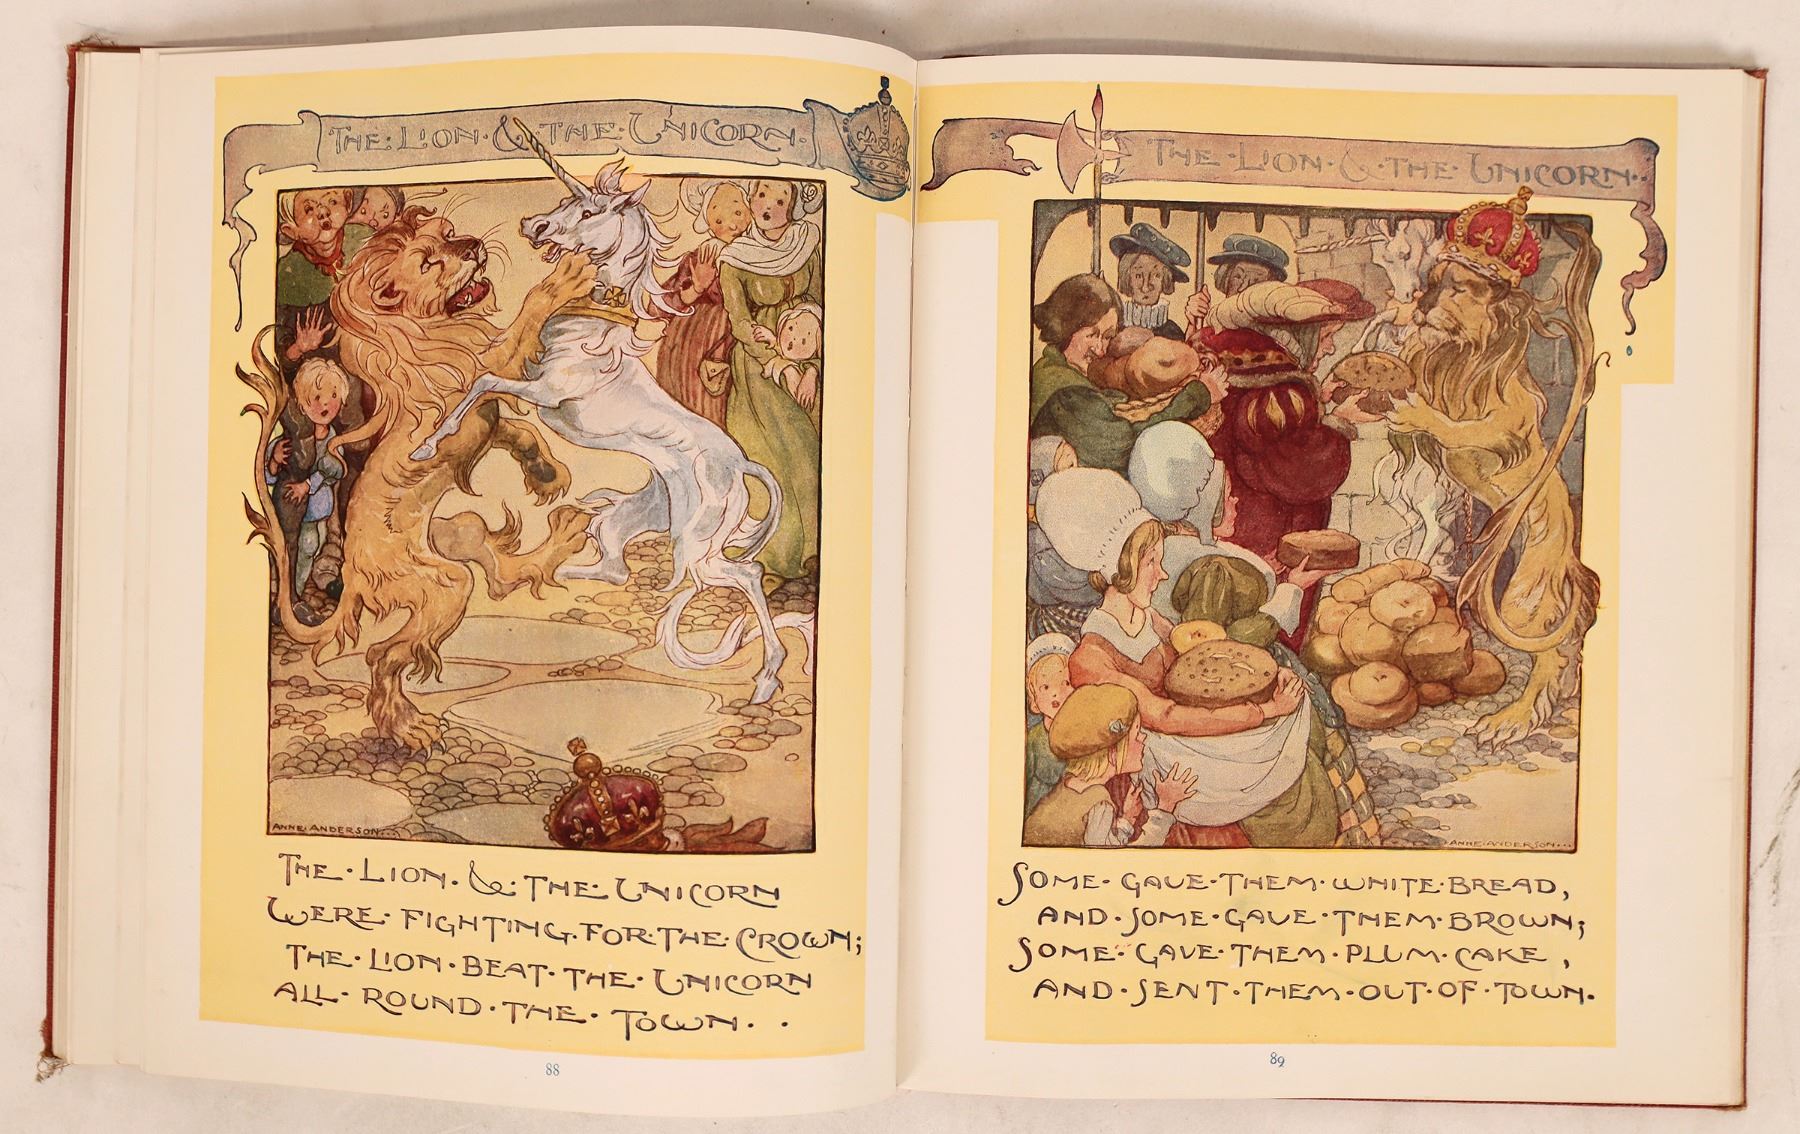 THE·LION·&·THE·UNICORN·
ANNE·ANDERSON...
THE·LION·&·THE·UNICORN
WERE·FIGHTING·FOR·THE·CROWN;
THE·LION·BEAT·THE·UNICORN
ALL·ROUND·THE·TOWN··
88
THE·LION·&·THE·UNICORN··
ANNE·ANDERSON...
SOME·GAVE·THEM·WHITE·BREAD,
AND·SOME·GAVE·THEM·BROWN;
SOME·GAVE·THEM·PLUM·CAKE,
AND·SENT·THEM·OUT·OF·TOWN.
89